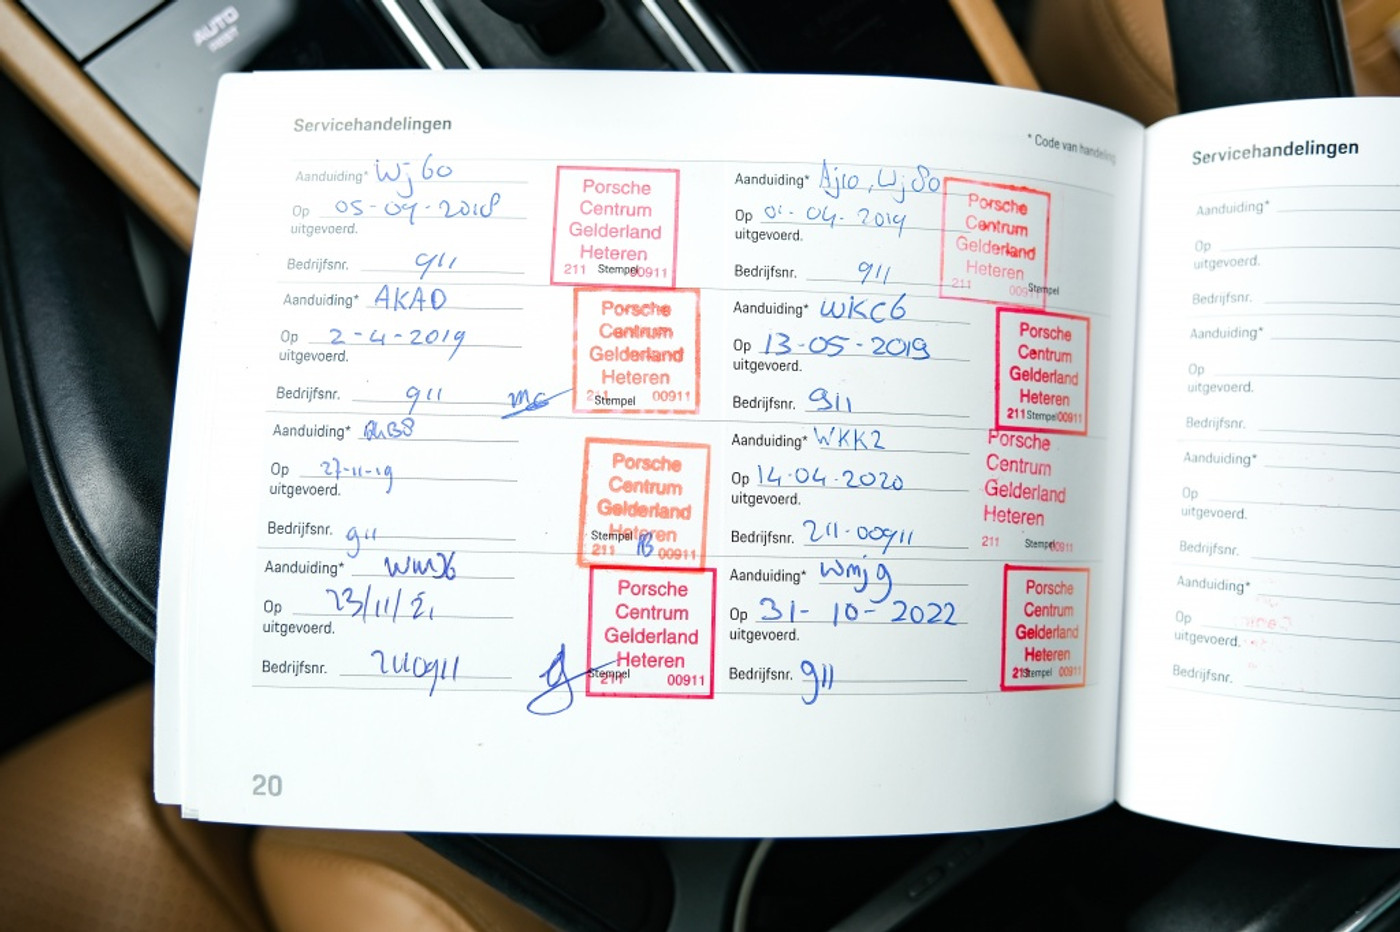 AUTO
Servicehandelingen
* Code van handeling
Aanduiding* Wj60
Op 05-09-2018
uitgevoerd.
Bedrijfsnr. 911
Porsche
Centrum
Gelderland
Heteren
211 Stempel 00911
Aanduiding* Aj10, Wj80
Op 01-04-2019
uitgevoerd.
Bedrijfsnr. 911
Porsche
Centrum
Gelderland
Heteren
211 Stempel
Aanduiding* AKAD
Op 2-4-2019
uitgevoerd.
Bedrijfsnr. 911
Porsche
Centrum
Gelderland
Heteren
Stempel 00911
Aanduiding* WKC6
Op 13-05-2019
uitgevoerd.
Bedrijfsnr. 911
Porsche
Centrum
Gelderland
Heteren
211 Stempel 00911
Aanduiding*
Op 27-11-19
uitgevoerd.
Bedrijfsnr. 911
Porsche
Centrum
Gelderland
Heteren
Stempel
211 00911
Aanduiding* WKK2
Op 14-04-2020
uitgevoerd.
Bedrijfsnr. 211-00911
Porsche
Centrum
Gelderland
Heteren
211 Stempel 00911
Aanduiding*
Op 23/11/21
uitgevoerd.
Bedrijfsnr.
Porsche
Centrum
Gelderland
Heteren
Stempel
211 00911
Aanduiding* Wmjg
Op 31-10-2022
uitgevoerd.
Bedrijfsnr. 911
Porsche
Centrum
Gelderland
Heteren
Stempel 00911
20
Servicehandelingen
Aanduiding*
Op
uitgevoerd.
Bedrijfsnr.
Aanduiding*
Op
uitgevoerd.
Bedrijfsnr.
Aanduiding*
Op
uitgevoerd.
Bedrijfsnr.
Aanduiding*
Op
uitgevoerd.
Bedrijfsnr.